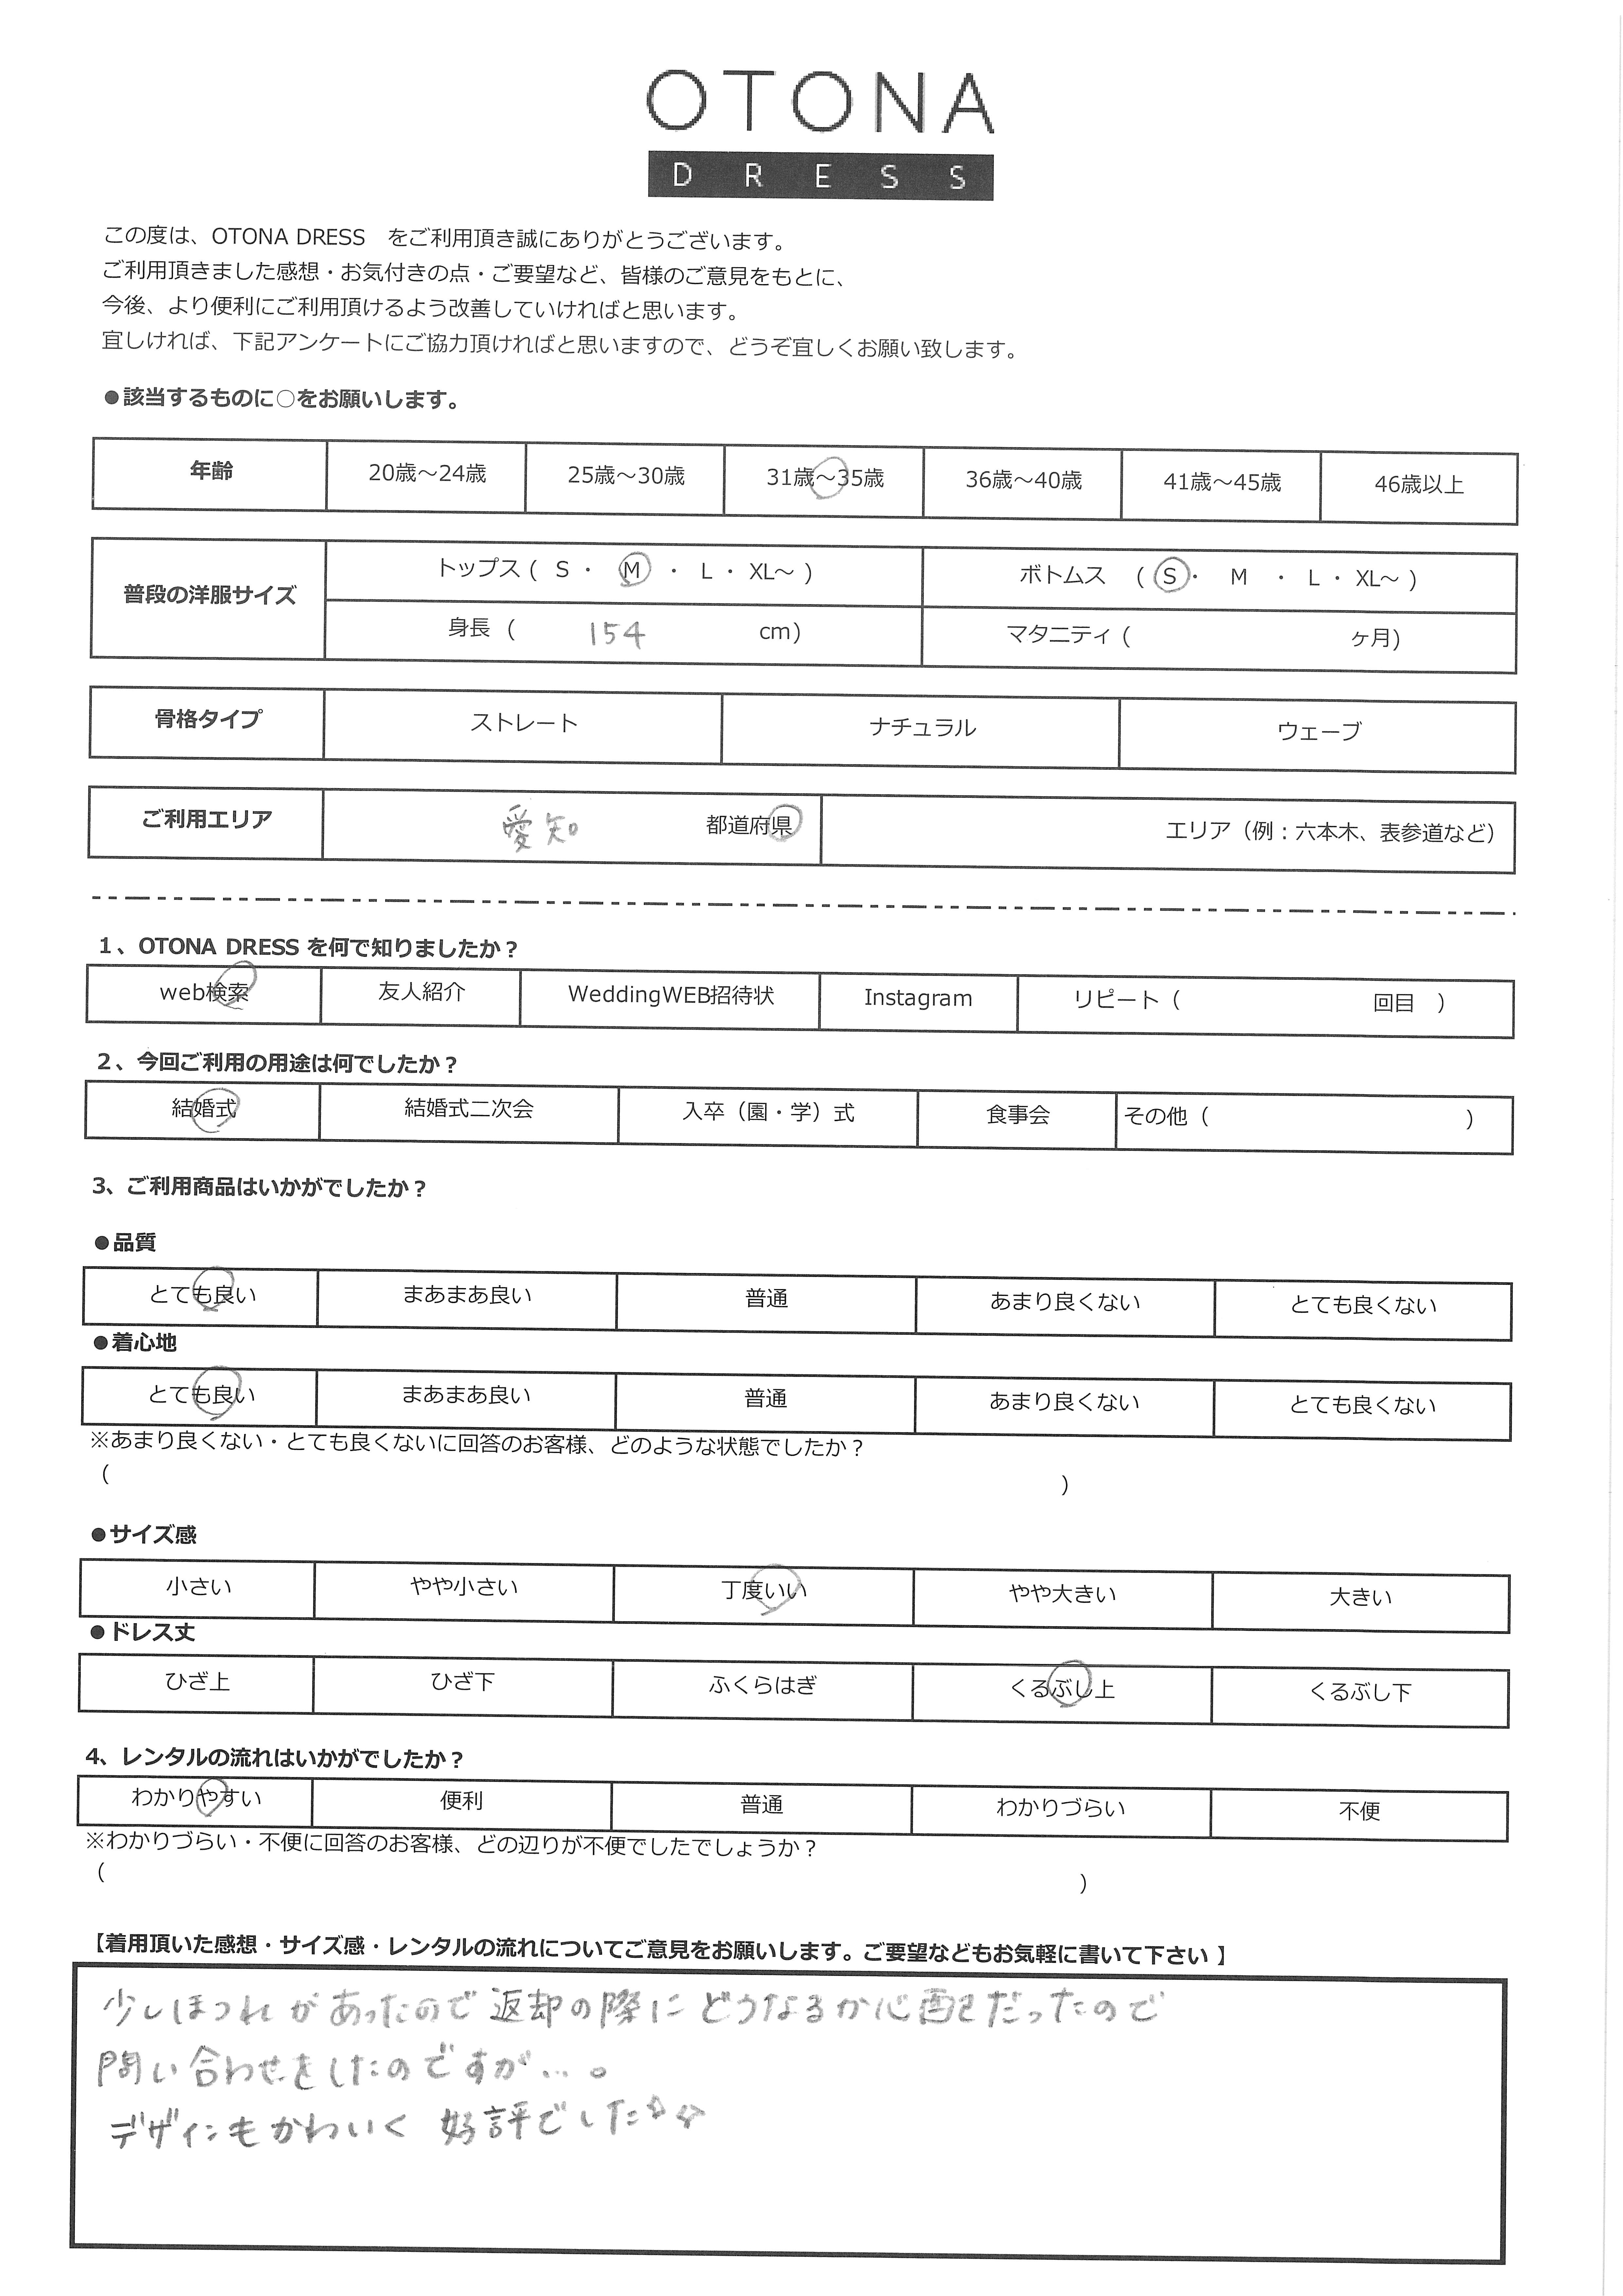 OTONA
DRESS
この度は、OTONA DRESS　をご利用頂き誠にありがとうございます。
ご利用頂きました感想・お気付きの点・ご要望など、皆様のご意見をもとに、
今後、より便利にご利用頂けるよう改善していければと思います。
宜しければ、下記アンケートにご協力頂ければと思いますので、どうぞ宜しくお願い致します。
●該当するものに○をお願いします。
年齢 20歳～24歳 25歳～30歳 31歳～35歳 36歳～40歳 41歳～45歳 46歳以上
普段の洋服サイズ トップス ( S ・ M ・ L ・ XL～ ) ボトムス ( S ・ M ・ L ・ XL～ )
身長 ( 154 cm) マタニティ ( ヶ月)
骨格タイプ ストレート ナチュラル ウェーブ
ご利用エリア 愛知 都道府県 エリア（例：六本木、表参道など）
1、OTONA DRESS を何で知りましたか？
web検索 友人紹介 WeddingWEB招待状 Instagram リピート（ 回目 ）
2、今回ご利用の用途は何でしたか？
結婚式 結婚式二次会 入卒（園・学）式 食事会 その他（ ）
3、ご利用商品はいかがでしたか？
●品質
とても良い まあまあ良い 普通 あまり良くない とても良くない
●着心地
とても良い まあまあ良い 普通 あまり良くない とても良くない
※あまり良くない・とても良くないに回答のお客様、どのような状態でしたか？
（ ）
●サイズ感
小さい やや小さい 丁度いい やや大きい 大きい
●ドレス丈
ひざ上 ひざ下 ふくらはぎ くるぶし上 くるぶし下
4、レンタルの流れはいかがでしたか？
わかりやすい 便利 普通 わかりづらい 不便
※わかりづらい・不便に回答のお客様、どの辺りが不便でしたでしょうか？
（ ）
【着用頂いた感想・サイズ感・レンタルの流れについてご意見をお願いします。ご要望などもお気軽に書いて下さい 】
少しほつれがあったので返却の際にどうなるか心配だったので
問い合わせをしたのですが…。
デザインもかわいく 好評でした☆☆